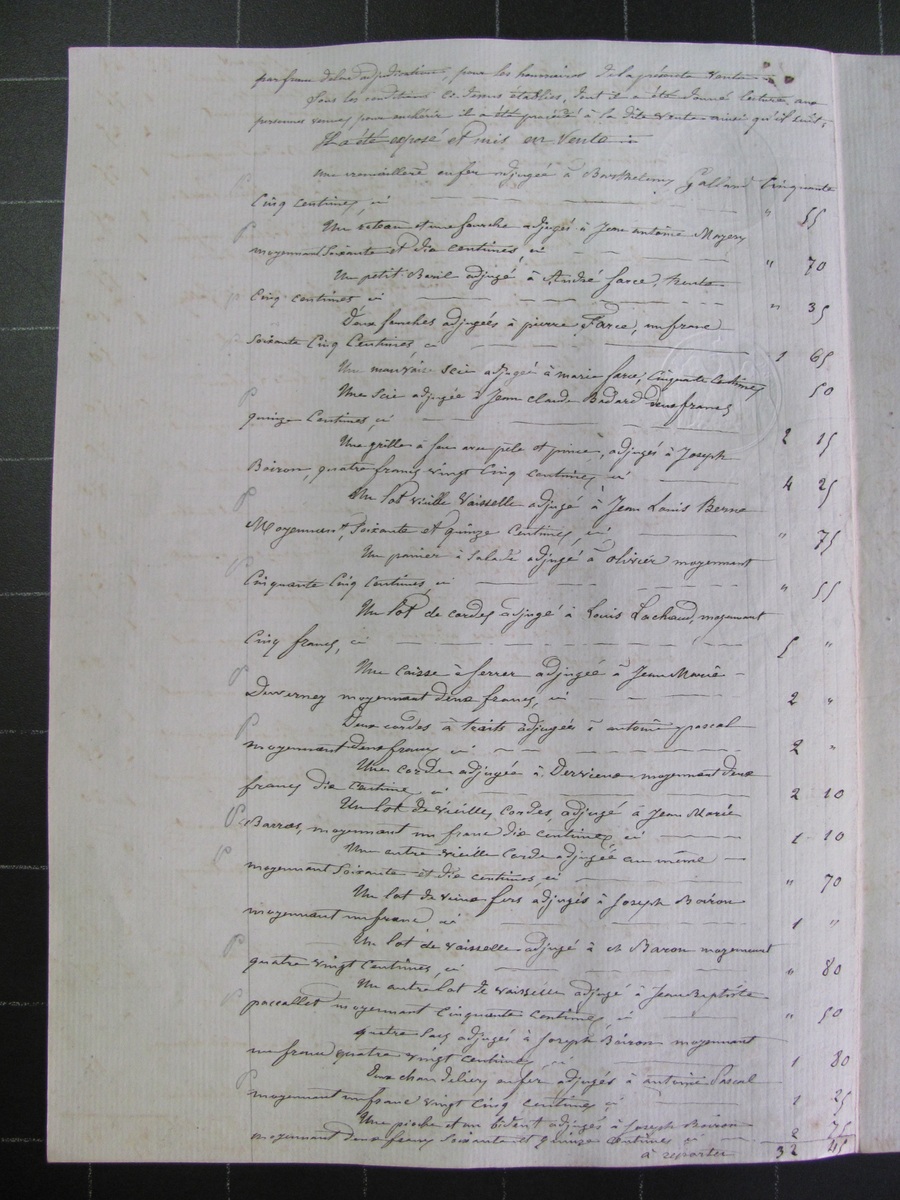 par franc de leur adjudication, pour les honoraires de la présente vente.
Sous les conditions ci-dessus établies, dont il a été donné lecture aux
personnes venues pour enchérir il a été procédé à la dite vente ainsi qu'il suit:
Il a été exposé et mis en vente :
Une adjugée à Barthelemy Galland Cinquante
Cinq centimes, ci " 55
Un et une fourche adjugés à Jean antoine
moyennant Soixante et dix centimes, ci " 70
Un petit Baril adjugé à André farce, trente
Cinq centimes ci " 35
Deux fourches adjugées à pierre Farce, un franc
Soixante Cinq Centimes, ci 1 65
Une mauvaise scie adjugée à marie farce, Cinquante Centimes 50
Une Scie adjugée à Jean Claude Badard deux francs
quinze Centimes, ci 2 15
Une grille à feu avec pèle et pince, adjugés à Joseph
Boiron, quatre francs vingt Cinq centimes ci 4 25
Un lot vieille Vaisselle adjugé à Jean Louis Berne
Moyennant, Soixante et quinze Centimes, ci " 75
Un panier à Salade adjugé à Olivier moyennant
Cinquante Cinq Centimes, ci " 55
Un lot de cordes adjugé à Louis Lachaud, moyennant
Cinq francs, ci 5 "
Une caisse à ferrer adjugée à Jean Marie
Duverney moyennant deux francs, ci 2 "
Deux cordes à traits adjugées à antoine pascal
moyennant deux francs ci 2 "
Une corde adjugée à Dervieux moyennant deux
francs dix centimes, ci 2 10
Un lot de vieilles cordes, adjugé à Jean Marie
Barras, moyennant un franc dix centimes, ci 1 10
Une autre vieille Corde adjugée au même
moyennant Soixante et dix centimes, ci " 70
Un lot de vieux fers adjugés à Joseph Boiron
moyennant un franc ci 1 "
Un lot de vaisselle adjugé à Baron moyennant
quatre vingt Centimes, ci " 80
Un autre lot de vaisselle adjugé à Jean Baptiste
pascallet moyennant Cinquante centimes, ci " 50
quatre Sacs adjugés à Joseph Boiron moyennant
un franc quatre vingt centimes ci 1 80
Deux chandeliers en fer adjugés à antoine Pascal
moyennant un franc vingt Cinq centimes, ci 1 25
Une pioche et un bident adjugés à Joseph Boiron
moyennant deux francs Soixante et quinze centimes ci 2 75
à reporter 32 45